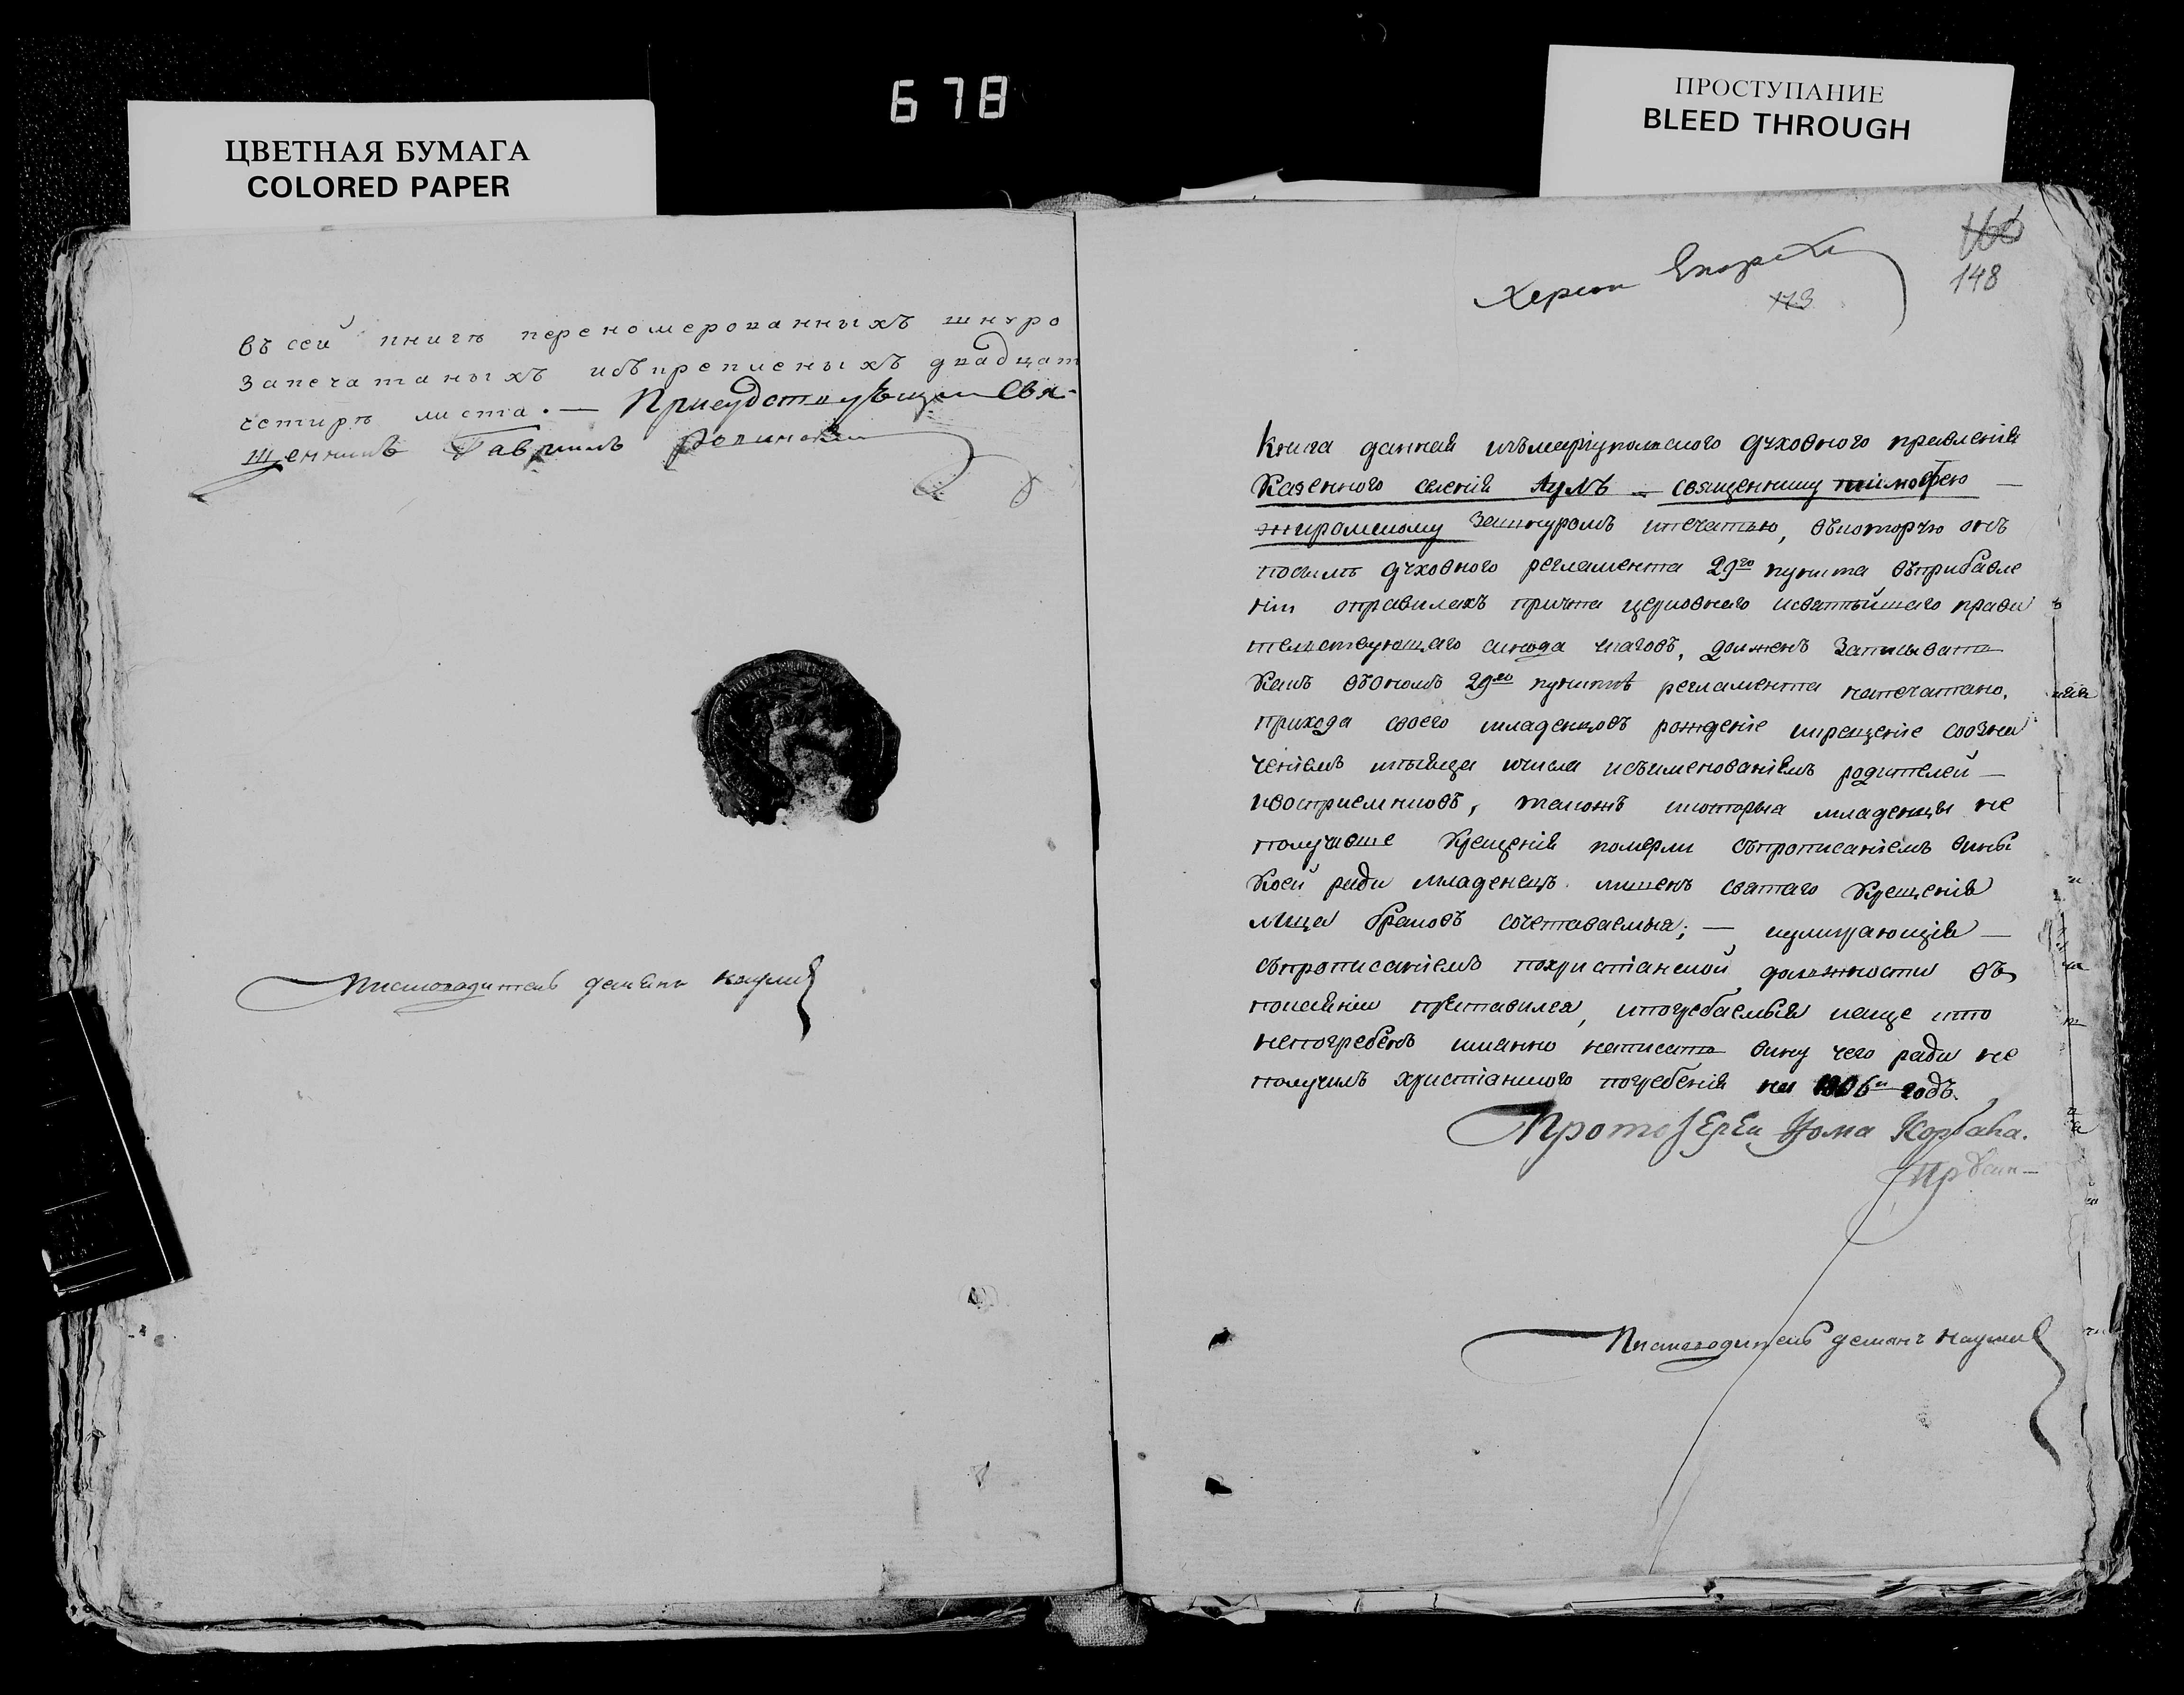 ЦВЕТНАЯ БУМАГА
COLORED PAPER
678
ПРОСТУПАНИЕ
BLEED THROUGH
въ сей книгѣ переномерованныхъ шнуро
запечатаныхъ искрепленыхъ двадцат
четирѣ листа. — Присудствующий Свя-
щенникъ Гавриилъ
Писмоводитель
Херсон
148
113
Книга данная измариупольского духовного правления
Казенного селения Аулъ — священнику тимофею —
зашнуромъ ипечатью, вкоторую онъ
посилѣ духовного регламента 29го пункта вприбавле
нии оправилахъ причта церковнаго исвятѣйшаго прави
телствующаго синода указовъ, долженъ записывать
какъ вономъ 29мъ пунктѣ регламента напечатано,
прихода своего младенцовъ рождение икрещение созна
чениемъ ичисла исъименованиемъ родителей —
ивосприемниковъ, такожъ икоторыя младенцы не
получивше крещения померли спрописаниемъ вины
коей ради младенецъ лишенъ святаго крещения
лица бракомъ сочетаваемыя; — иумирающия —
спрописаниемъ похристианской должности въ
покаянии преставился, ипогребаемыя иаще кто
непогребенъ имянно написать вину чего ради не
получилъ христианского погребения на 1806й годъ.
Протоіерей Фома Корбака.
Писмоводитель